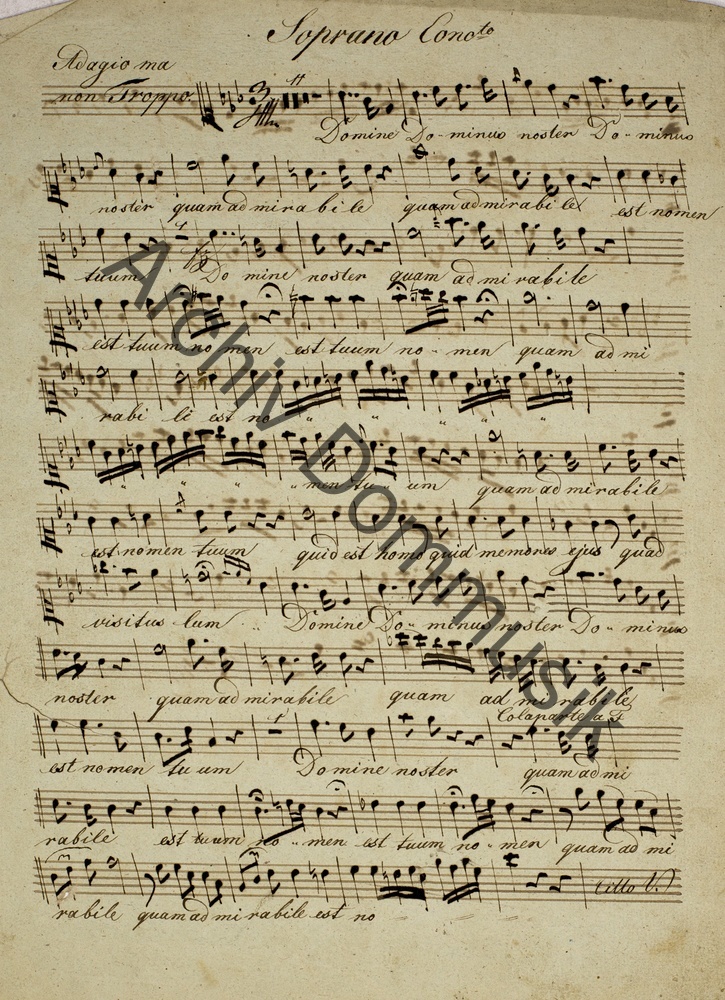 Soprano Conc.to
Adagio ma
non Troppo.
Domine Do - minus noster Do - minus
noster quam admirabile quam admirabile est nomen
tuum Do mine noster quam ad mirabile
est tuum no men est tuum no - men quam ad mi
rabi le est no
men tu um quam admirabile
est nomen tuum quid est homo quid memores ejus quad
visitus lum Domine Do - minus noster Do - minus
noster quam admirabile quam ad mirabile
Colaparte a F
est nomen tu um Domine noster quam ad mi
rabile est tuum no - men est tuum no - men quam ad mi
rabile quam ad mi rabile est no
Citto V.
Archiv Dommusik